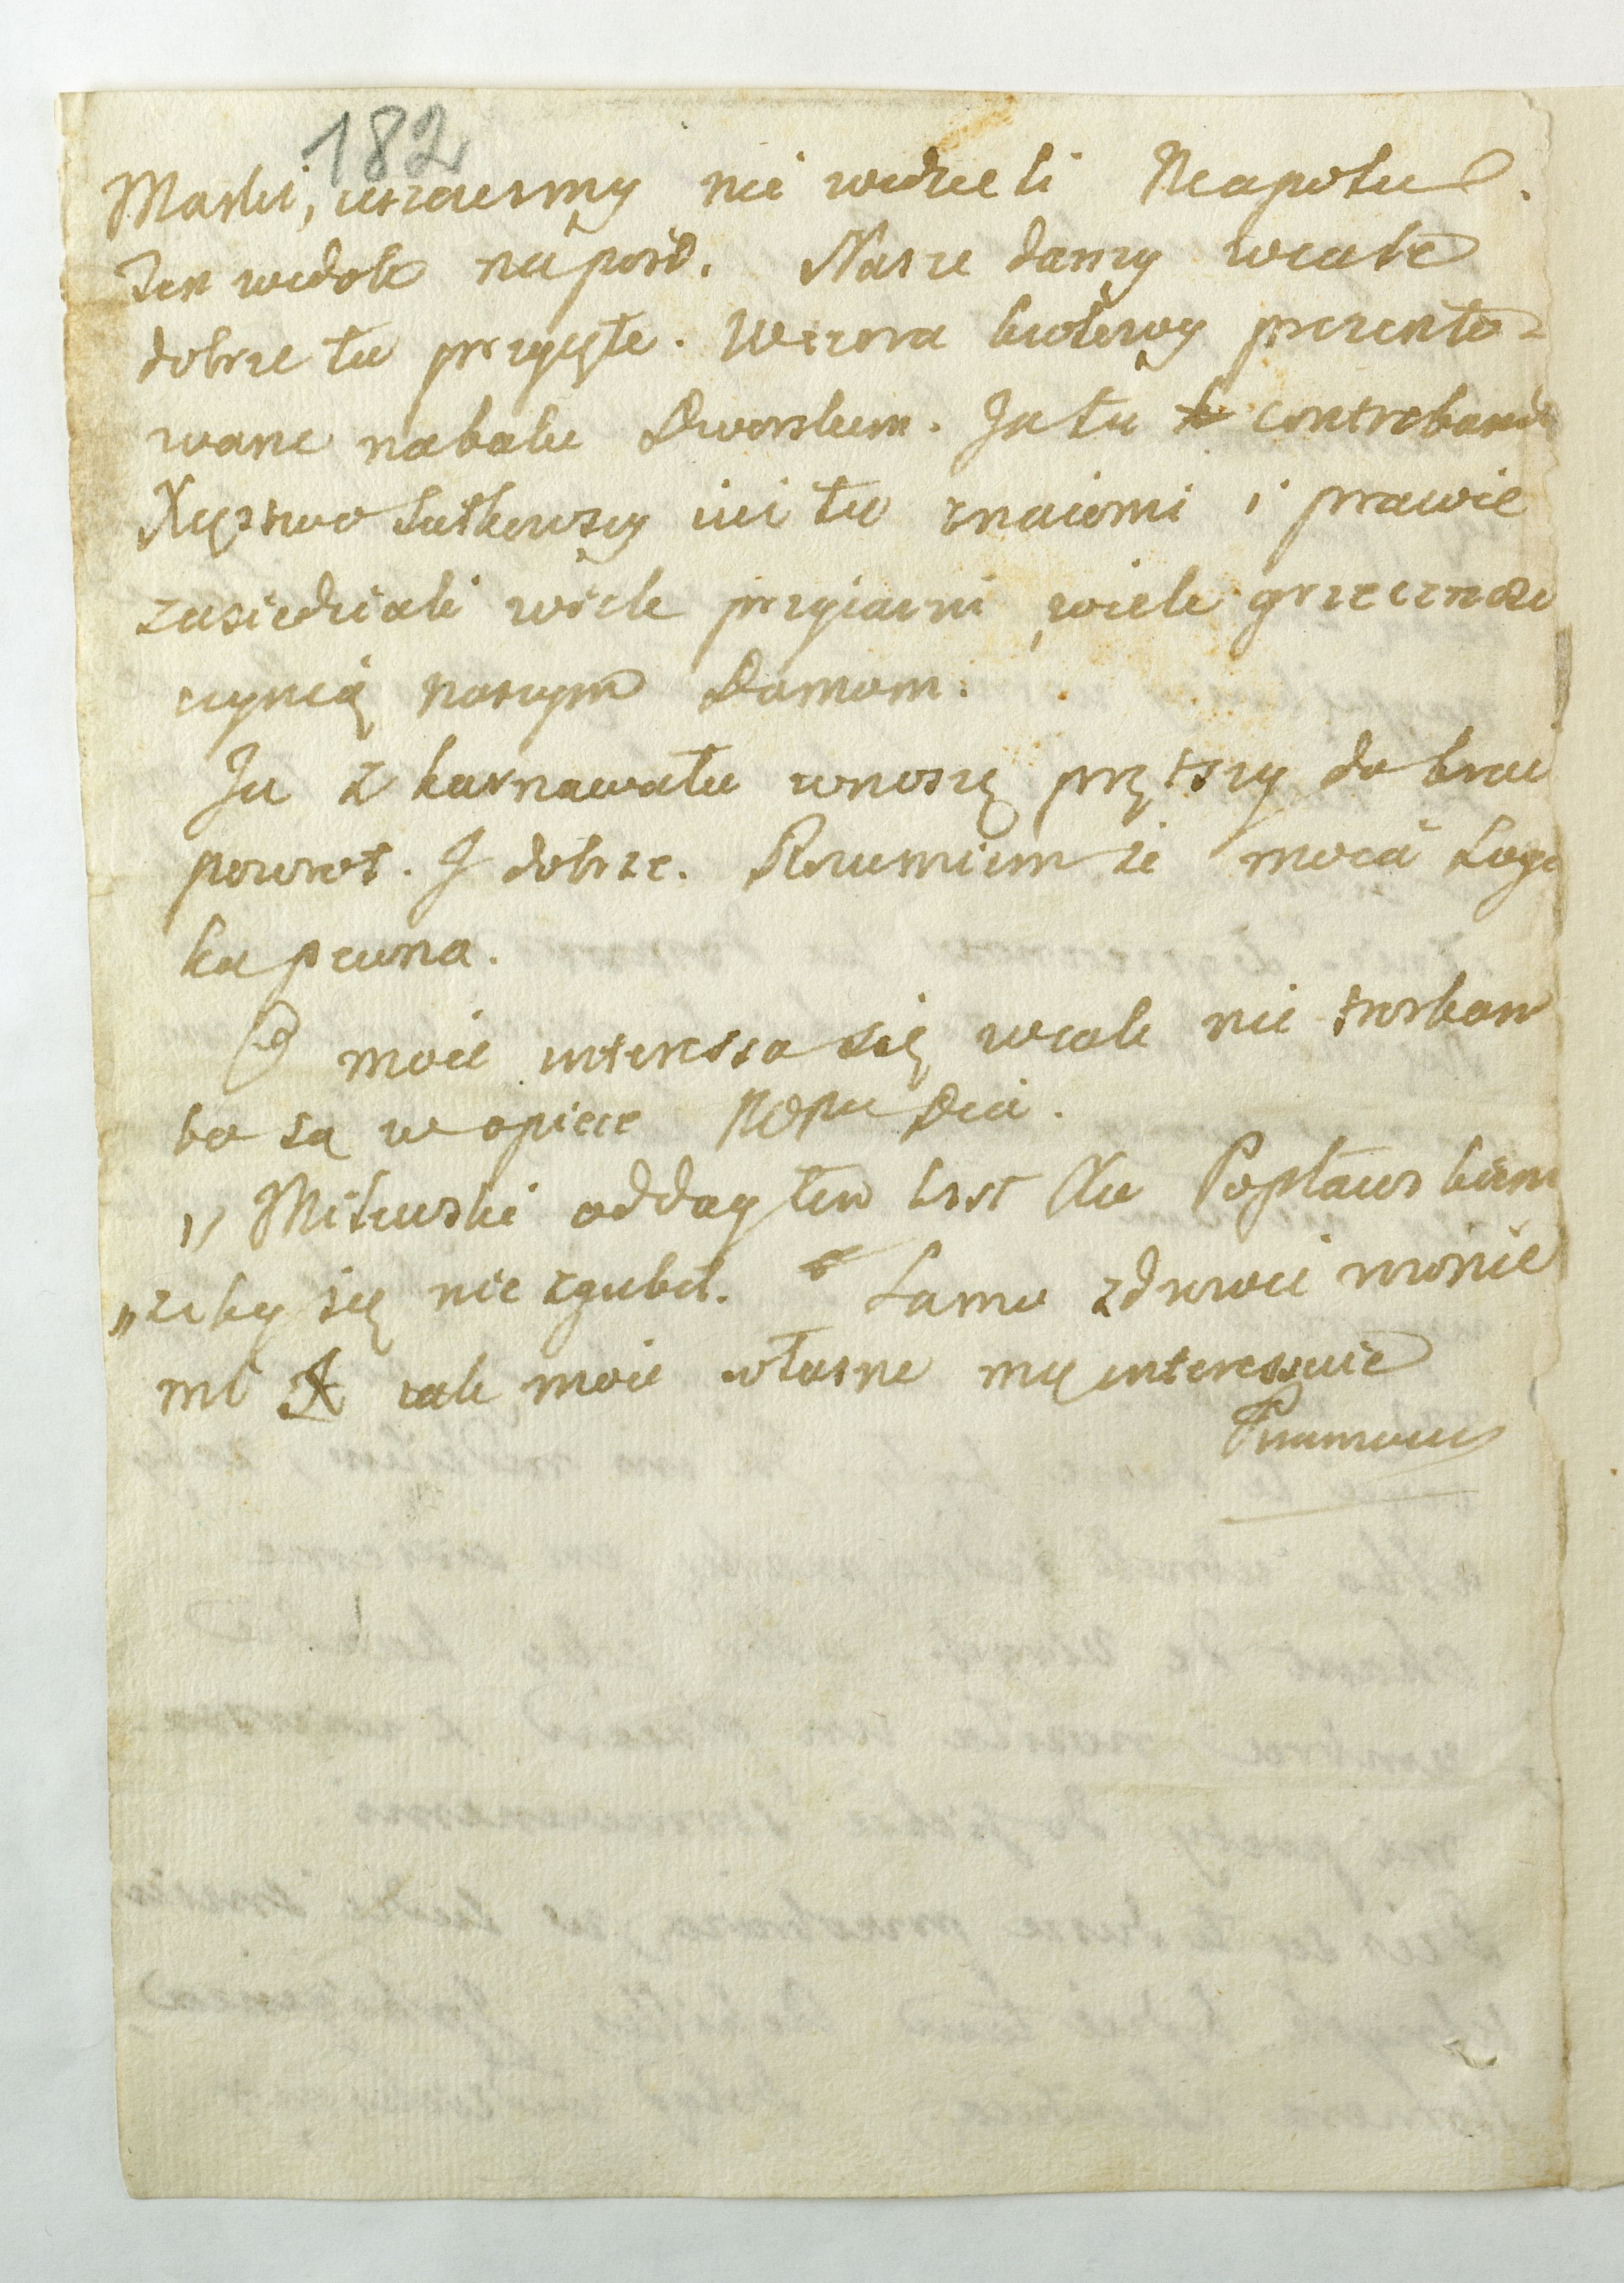 182
Maski, ieszcześmy nie widzieli Neapolu.
Ten widok naposd. Nasze damy wcale
dobrze tu przyięte. Wczora krolowy prezento=
wane na balu Dworskim. Ja tu contrebande
Xięstwo Sułkowscy iuż tu znaiomi i prawie
zasiedziali wiele przyiazni wiele grzecznosci
czynią naszym Damom.
Ja z karnawału wnoszę prętszy do kraiu
powrot. I dobrze. Rozumiem że moia Logi
ka pewna.
O moie interessa się wcale nie troskam
bo są w opiece
,, Mikuski odday ten list Xu Popławskiemu
,, żeby się nie zgubił. Samo zdrowie
mi iak moie własne mię interessuie